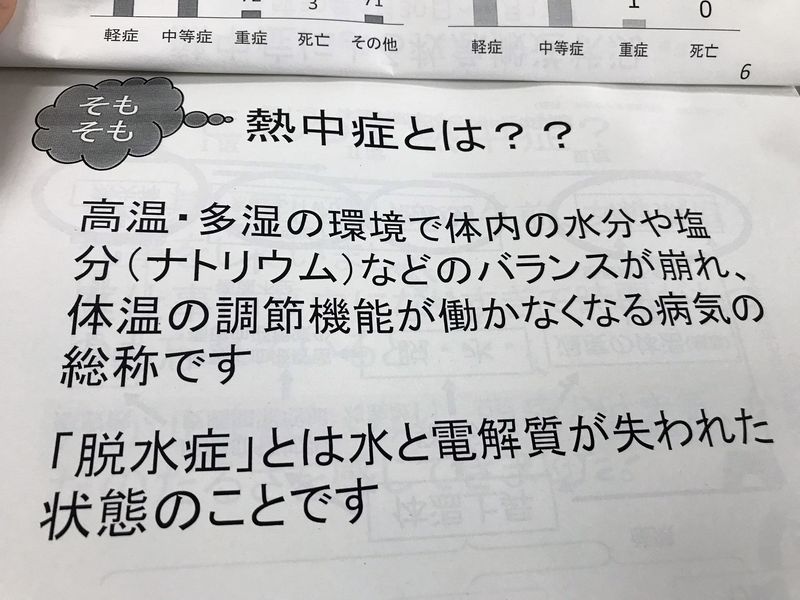 3 71 1 0
軽症 中等症 重症 死亡 その他 軽症 中等症 重症 死亡
6
そも
そも
熱中症とは？？
高温・多湿の環境で体内の水分や塩
分（ナトリウム）などのバランスが崩れ、
体温の調節機能が働かなくなる病気の
総称です
「脱水症」とは水と電解質が失われた
状態のことです